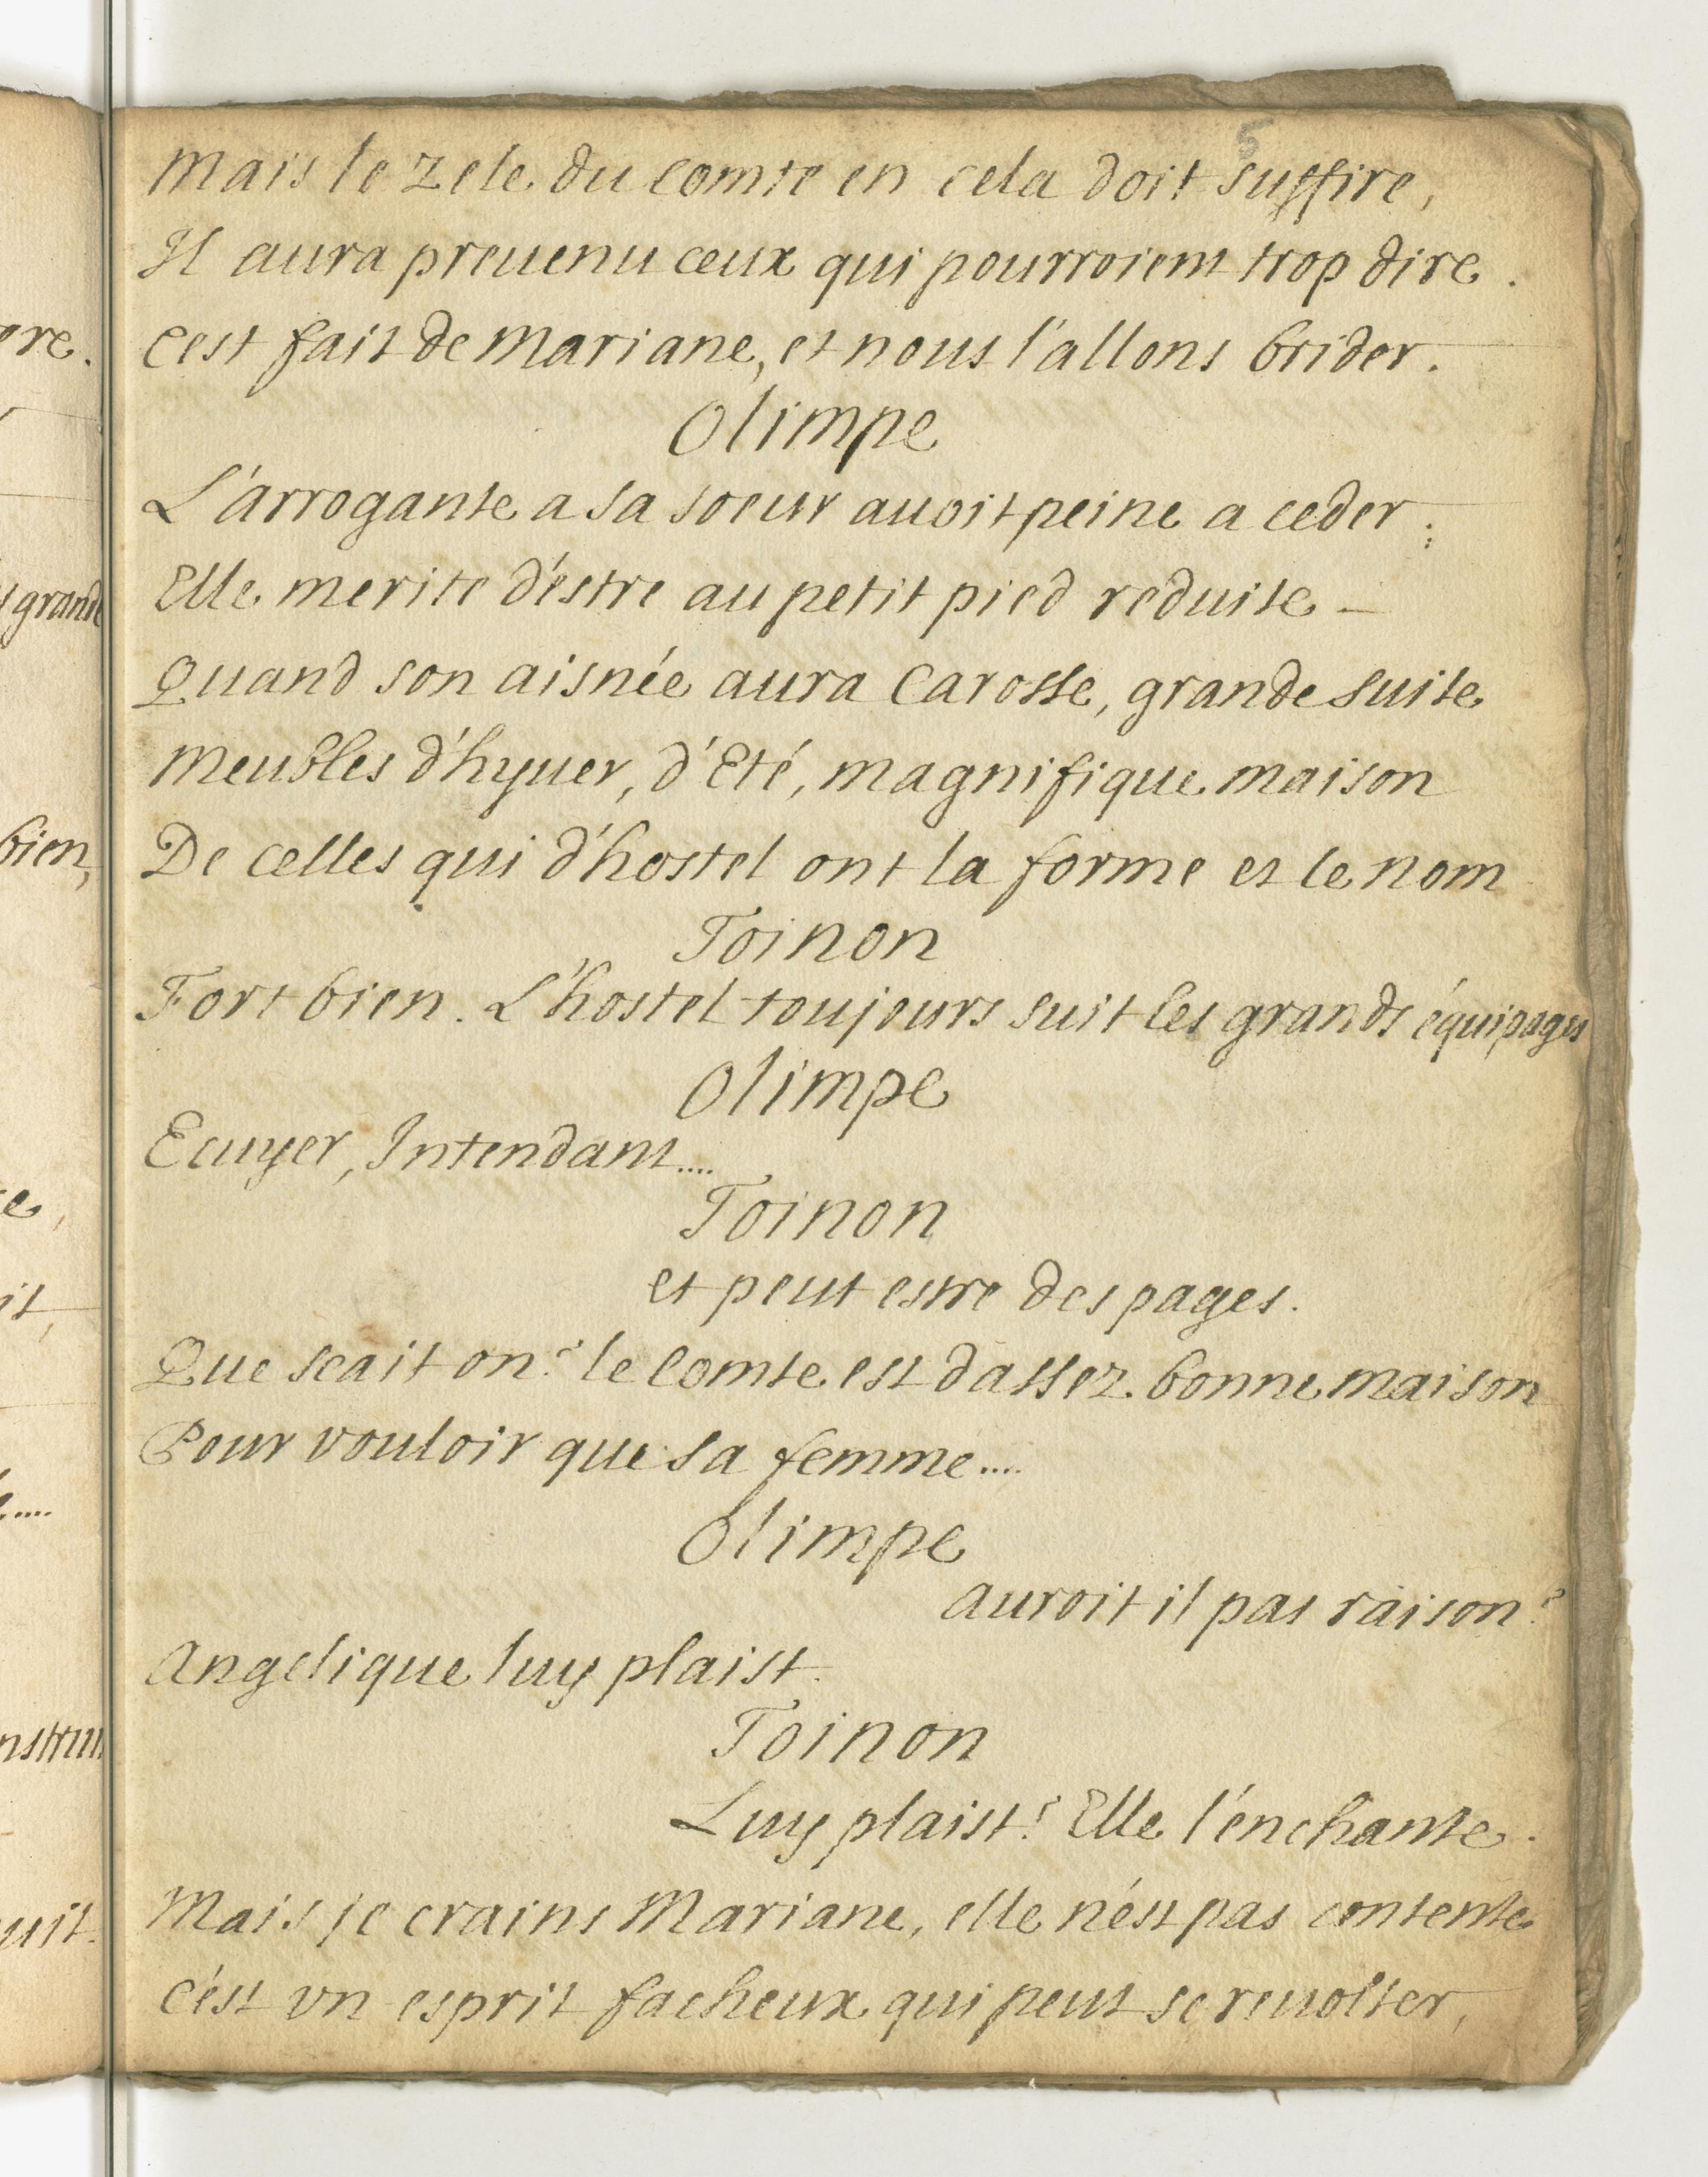 5
Mais le zele du comte en cela doit suffire,
Il aura preuenu ceux qui pourroient trop dire.
C'est fait de Mariane, et nous l'allons brider.
Olimpe
L'arrogante a sa soeur auoit peine a ceder;
Elle merite d'estre au petit pied reduite
Quand son aisnée aura Carosse, grande suite
Meubles d'hyuer, d'Eté, magnifique maison
De celles qui d'hostel ont la forme et le nom
Toinon
Fort bien. L'hostel toujours suit les grands équipages
Olimpe
Ecuyer, Intendant....
Toinon
et peut estre des pages.
Que scait on? le Comte est dassez bonne maison
Pour vouloir que sa femme....
Olimpe
auroit il pas raison?
Angelique luy plaist.
Toinon
Luy plaist? Elle l'enchante.
Mais je crains Mariane, elle n'est pas contente
c'est vn esprit facheux qui peut se reuolter,
ore.
grande
bien,
it,
uit.